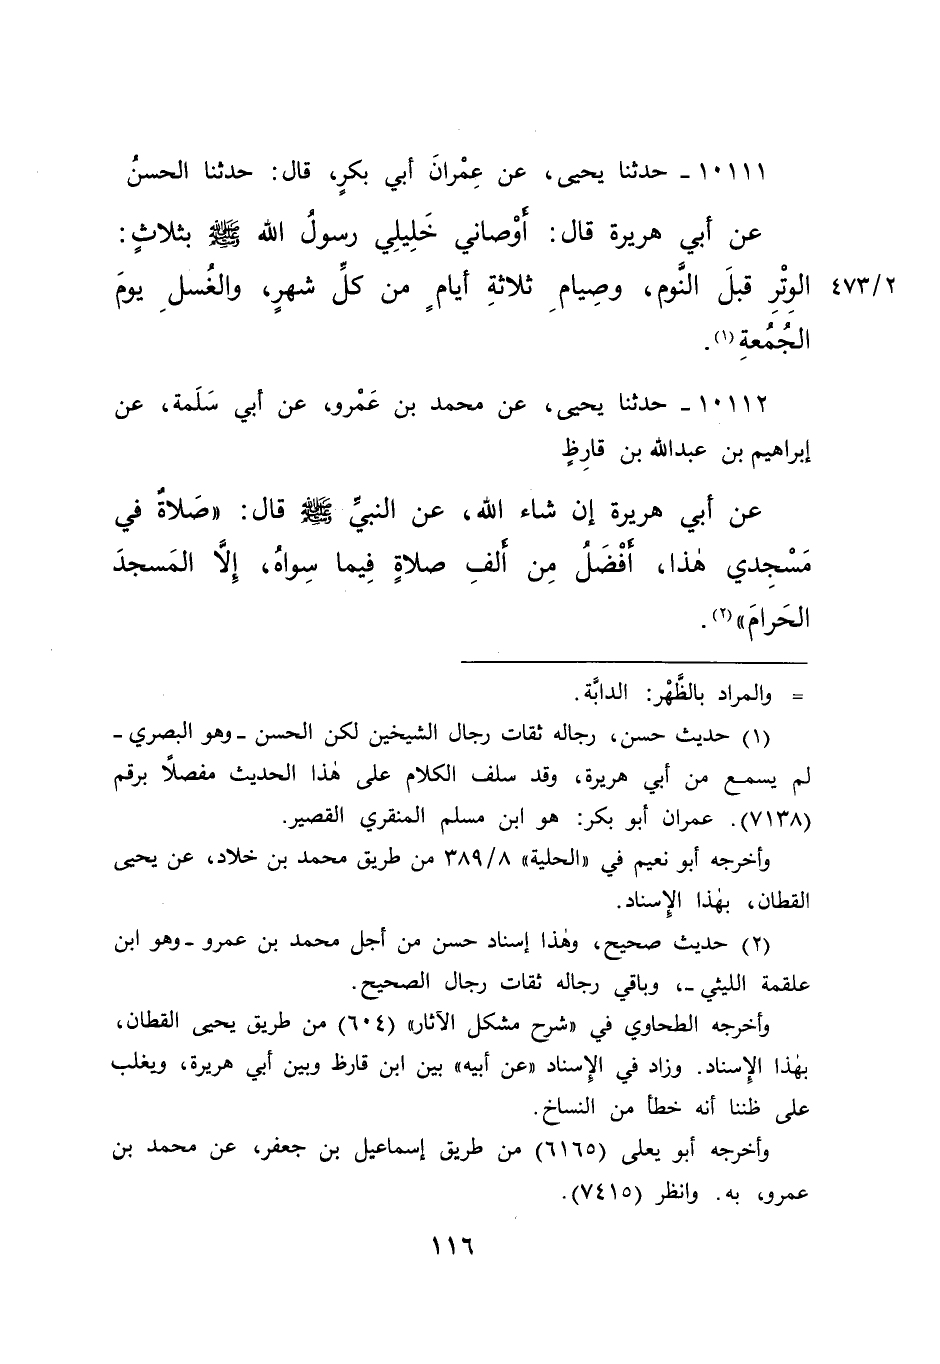 ١٠١١١ - حدثنا يحيى، عن عِمْرانَ أبي بكرٍ، قال: حدثنا الحسنُ
عن أبي هريرة قال: أَوْصاني خَلِيلِي رسولُ الله ﷺ بثلاثٍ:
٤٧٣/٢ الوِتْرِ قبلَ النَّوم، وصِيامِ ثلاثةِ أيامٍ من كلِّ شهرٍ، والغُسلِ يومَ
الجُمُعةِ(١).
١٠١١٢ - حدثنا يحيى، عن محمد بن عَمْرو، عن أبي سَلَمة، عن
إبراهيم بن عبدالله بن قارِظٍ
عن أبي هريرة إن شاء الله، عن النبيِّ ﷺ قال: «صَلاةٌ في
مَسْجِدي هٰذا، أَفْضَلُ مِن أَلفِ صلاةٍ فِيما سِواهُ، إِلَّا المَسجدَ
الحَرامَ»(٢).
= والمراد بالظَّهْر: الدابَّة.
(١) حديث حسن، رجاله ثقات رجال الشيخين لكن الحسن ـ وهو البصري ـ
لم يسمع من أبي هريرة، وقد سلف الكلام على هٰذا الحديث مفصلًا برقم
(٧١٣٨). عمران أبو بكر: هو ابن مسلم المنقري القصير.
وأخرجه أبو نعيم في «الحلية» ٣٨٩/٨ من طريق محمد بن خلاد، عن يحيى
القطان، بهٰذا الإسناد.
(٢) حديث صحيح، وهٰذا إسناد حسن من أجل محمد بن عمرو ـ وهو ابن
علقمة الليثي ـ، وباقي رجاله ثقات رجال الصحيح.
وأخرجه الطحاوي في «شرح مشكل الآثار» (٦٠٤) من طريق يحيى القطان،
بهٰذا الإسناد. وزاد في الإسناد «عن أبيه» بين ابن قارظ وبين أبي هريرة، ويغلب
على ظننا أنه خطأ من النساخ.
وأخرجه أبو يعلى (٦١٦٥) من طريق إسماعيل بن جعفر، عن محمد بن
عمرو، به. وانظر (٧٤١٥).
١١٦